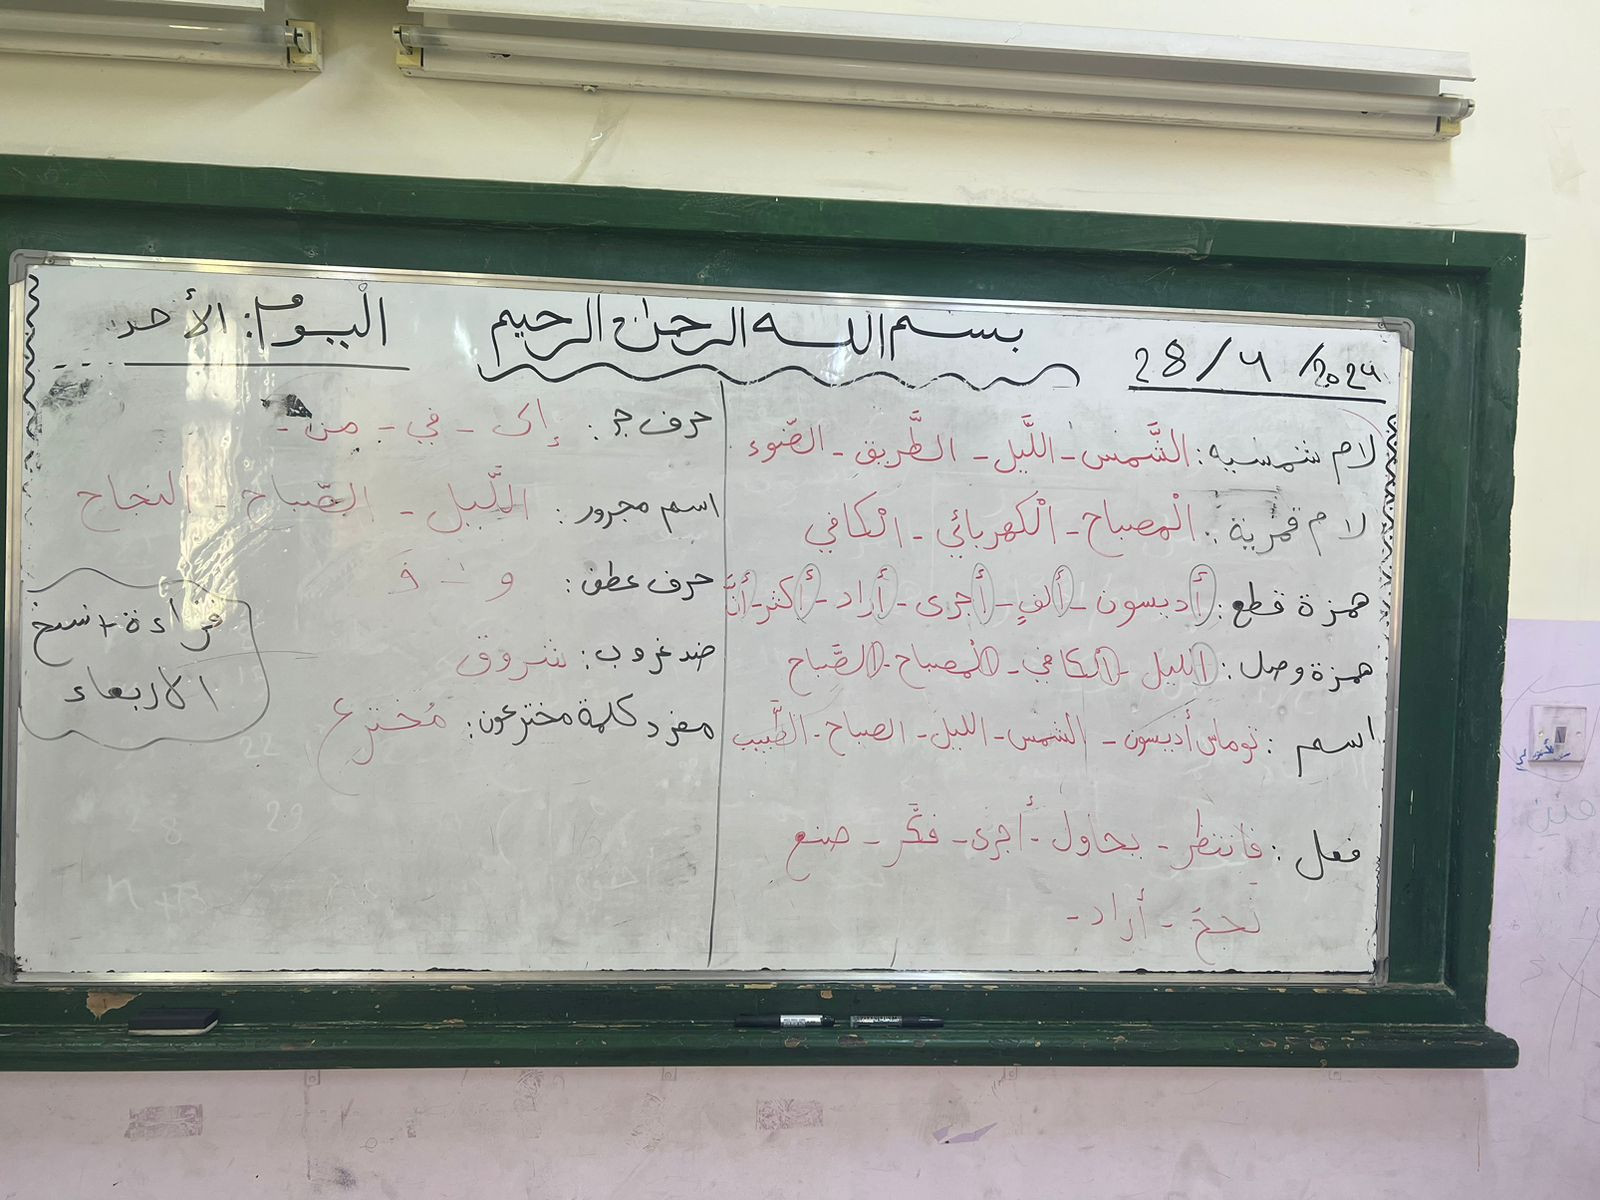 28/4/2024
بسم الله الرحمن الرحيم
الْيوم: الأحد
لام شمسيه: الشَّمس - اللَّيل - الطَّريق - الضّوء
لام قمرية: الْمصباح - الْكهربائي - الْكافي
همزة قطع: أديسون - ألفٍ - أجرى - أراد - أكثر - أنَّ
همزة وصل: الليل - الكافي - المصباح - الصَّباح
اسم: توماس أديسون - الشمس - الليل - الصباح - الطَّبيب
فعل: فانتظر - يحاول - أجرى - فكَّر - صنع
نجحَ - أراد -
حرف جر: إلى - في - من -
اسم مجرور: اللَّيل - الصَّباح - النجاح
حرف عطف: و - فَ
ضد غروب: شروق
مفرد كلمة مخترعون: مُخترع
قراءة + نسخ
الاربعاء